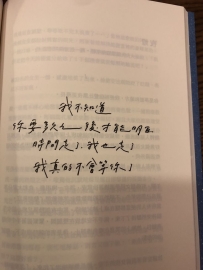 我不知道
你要多久 後才能明白
時間走了.我也走了
我真的不會等你了